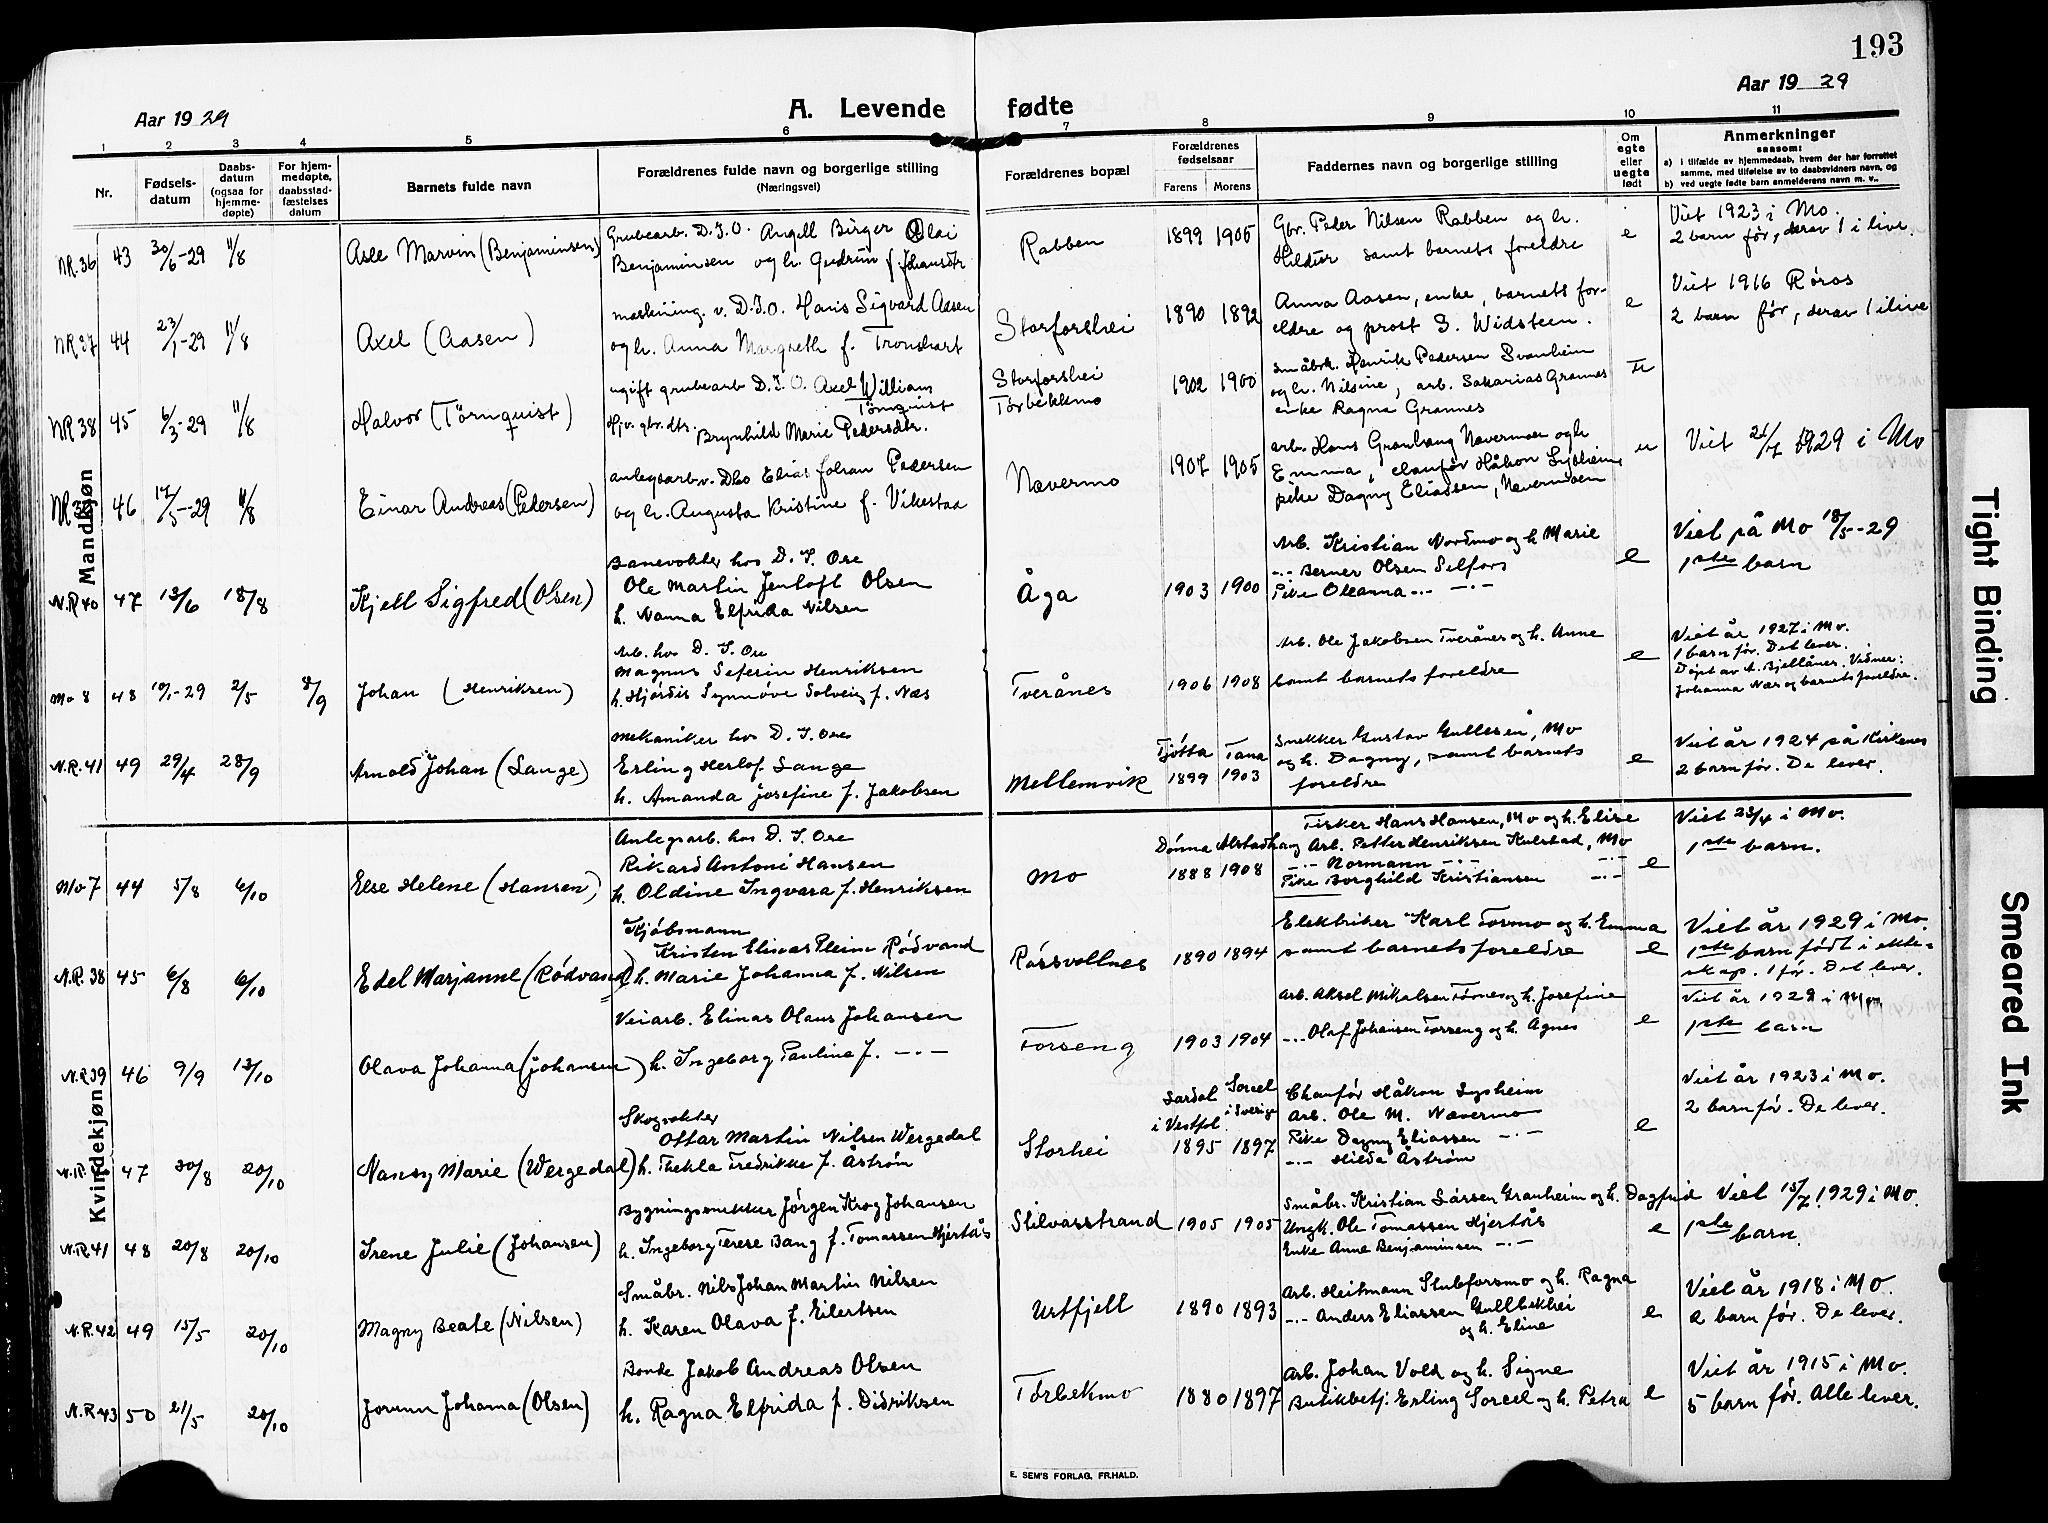 193
Aar 1929
A. Levende fødte
Aar 1929
1 2 3 4 5 6 7 8 9 10 11
Nr.
Fødsels-
datum
Daabs-
datum
(ogsaa for
hjemme-
døpte)
For hjem-
medøpte,
daabsstad-
fæstelses
datum
Barnets fulde navn
Forældrenes fulde navn og borgerlige stilling
(Næringsvei)
Forældrenes bopæl
Forældrenes
fødselsaar
Farens Morens
Faddernes navn og borgerlige stilling
Om
egte
eller
uegte
født
Anmerkninger
saasom:
a) i tilfælde av hjemmedaab, hvem der har forrettet
samme, med tilføielse av to daabsvidners navn, og
b) ved uegte fødte barn anmelderens navn m. v..
Mandkjøn
NR.36 43 30/6-29 11/8 Asle Marvin (Benjaminsen)
Grubearb. D.I.O. Angell Birger Olai
Benjaminsen og h. Gudrun f. Johansdtr
Rabben 1899 1905
Gbr. Peder Nilsen Rabben og h.
Hildur samt barnets foreldre
e
Viet 1923 i Mo.
2 barn før, derav 1 i live.
NR37 44 23/1-29 11/8 Axel (Aasen)
maskining. v. D.I.O. Hans Sigvard Aasen
og h. Anna Margreth f. Tronshart
Storforshei 1890 1892
Anna Aasen, enke, barnets for-
eldre og prost S. Widsteen.
e
Viet 1916 Røros
2 barn før, derav 1 i live
NR38 45 6/3-29 11/8 Halvor (Törnquist)
ugift grubearb D.I.O. Axel William
Törnquist
Hjv. gbr.dtr. Brynhild Marie Pedersdtr.
Storforshei
Tørbekkmo
1902 1900
småbrk. Henrik Pedersen Svanheim
og h. Nilsine, arb. Sakarias Grannes
enke Ragna Grannes
NR39 46 17/5-29 11/8 Einar Andreas (Pedersen)
anlegsarb v. Dio Elias Johan Pedersen
og h. Augusta Kristine f. Vikestaa
Nævermo 1907 1905
arb. Hans Granhaug Nævermoen og h
Emma, chauför Håkon Sysheim
pike Dagny Eliassen, Nævermoen
u
Viet 21/7 1929 i Mo
N.R 40 47 13/6 18/8 Kjell Sigfred (Olsen)
Banevokter hos D. I. Ore
Ole Martin Jentoft Olsen
h. Nanna Elfrida Nilsen
Åga 1903 1900
Arb. Kristian Nordmo og h Marie
-"- Berner Olsen Selfors
Pike Oleanna -"- -"-
e
Viet på Mo 18/5-29
1ste barn
Mo 8 48 10/1-29 2/5 8/9 Johan (Henriksen)
Arb. hos D. I. Ore
Magnus Seferin Henriksen
h. Hjördis Synnøve Solveig f. Næs
Tverånes 1906 1908
Arb. Ole Jakobsen Tverånes og h. Anne
samt barnets foreldre
e
Viet år 1927 i Mo.
1 barn før. Det lever.
Døpt av A. Bjellåner. Vidner:
Johanna Næs og barnets foreldre.
N.R.41 49 29/4 28/9 Arnold Johan (Lange)
Mekaniker hos D. I. Ore
Erling Herlof Lange
h. Amanda Josefine f. Jakobsen
Mellemvik
Tjötta Tana
1899 1903
Snekker Gustav Gullesen, Mo
og h. Dagny, samt barnets
foreldre
e
Viet år 1924 på Kirkenes
2 barn før. De lever.
Kvindekjøn
Mo 7 44 5/8 6/10 Else Helene (Hansen)
Anlegsarb. hos D. I. Ore
Rikard Antoni Hansen
h. Oldine Ingvara f. Henriksen
Mo
Dönna Alstadhaug
1888 1908
Fisker Hans Hansen, Mo og h. Elise
Arb. Petter Henriksen Kulstad, Mo
-"- Normann -"- -"-
Pike Borghild Kristiansen -"-
e
Viet 23/4 i Mo.
1ste barn.
N.R. 38 45 6/8 6/10 Edel Marjanne (Rödvand)
Kjöbmann
Kristen Elinas Plein Rödvand
h. Marie Johanna f. Nilsen
Røssvollnes 1890 1894
Elektriker Karl Formo og h. Emma
samt barnets foreldre
e
Viet år 1929 i Mo.
1ste barn født i ekte-
skap. 1 før. Det lever.
N.R39 46 9/9 13/10 Olava Johanna (Johansen)
Veiarb. Elinas Olaus Johansen
h. Ingeborg Paulina f. -"-
Forseng 1903 1904
Arb. Aksel Mikalsen Förnes og h. Josefine
-"- Olaf Johansen Forseng og h. Agnes
e
Viet år 1929 i Mo
1ste barn
N.R. 47 20/8 20/10 Nancy Marie (Wergedal)
Skogvokter
Ottar Martin Nilsen Wergedal
h. Thekla Fredrikke f. Åström
Storhei
Lardal
i Vestfol.
1895
Sorsel
i Sverige
1897
Chauför Håkon Sysheim
Arb. Ole M. Nævermo
Pike Dagny Eliassen -"-
-"- Hilda Åström
e
Viet år 1923 i Mo.
2 barn før. De lever.
N.R.41 48 20/8 20/10 Irene Julie (Johansen)
Bygningssnekker Jörgen Krog Johansen
h. Ingeborg Terese Bang f. Tomassen Hjertås
Stilvasstrand 1905 1905
Småbr. Kristian Larsen Granheim og h. Dagfrid
Ungk. Ole Tomassen Hjertås
Enke Anne Benjaminsen -"-
e
Viet 15/7 1929 i Mo.
1ste barn.
N.R.42 49 15/5 20/10 Magny Beate (Nilsen)
Småbr. Nils Johan Martin Nilsen
h. Karen Olava f. Eilertsen
Urtfjell 1890 1893
Arb. Heitmann Stubforsmo og h. Ragna
-"- Anders Eliassen Gullbekhei
og h. Eline
e
Viet år 1918 i Mo.
2 barn før. De lever.
N.R43 50 21/5 20/10 Jorunn Johanna (Olsen)
Bonde Jakob Andreas Olsen
h. Ragna Elfrida f. Didriksen
Tørbekmo 1880 1897
Arb. Johan Vold og h. Signe
Butikbetj. Erling Sorcel og h. Petra
e
Viet år 1915 i Mo.
5 barn før. Alle lever.
E. SEM'S FORLAG, FR.HALD.
Tight Binding
Smeared Ink